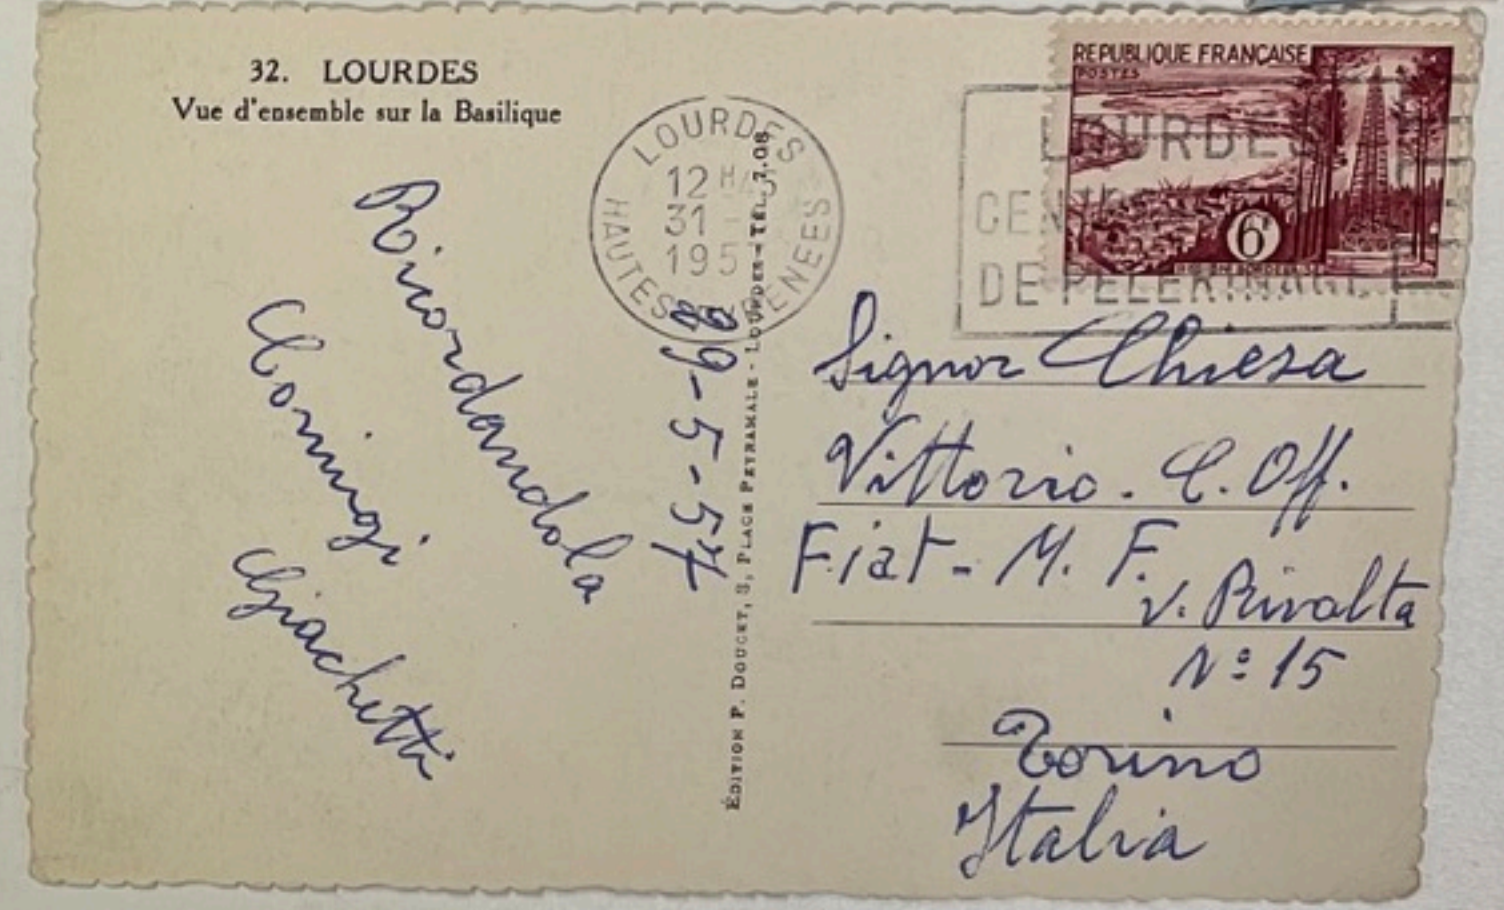 32. LOURDES
Vue d'ensemble sur la Basilique
LOURDES
12 H
31
195
HAUTES
REPUBLIQUE FRANÇAISE
POSTES
6F
LOURDES
DE PELERINAGE
Ricordandola
Giachetti
29-5-57
ÉDITION P. DOUCET, 3, PLACE PEYRAMALE - LOURDES - TÉL. 7.08
Signor Chiesa
Vittorio. C. Off.
Fiat - M. F.
v. Rivalta
N° 15
Torino
Italia